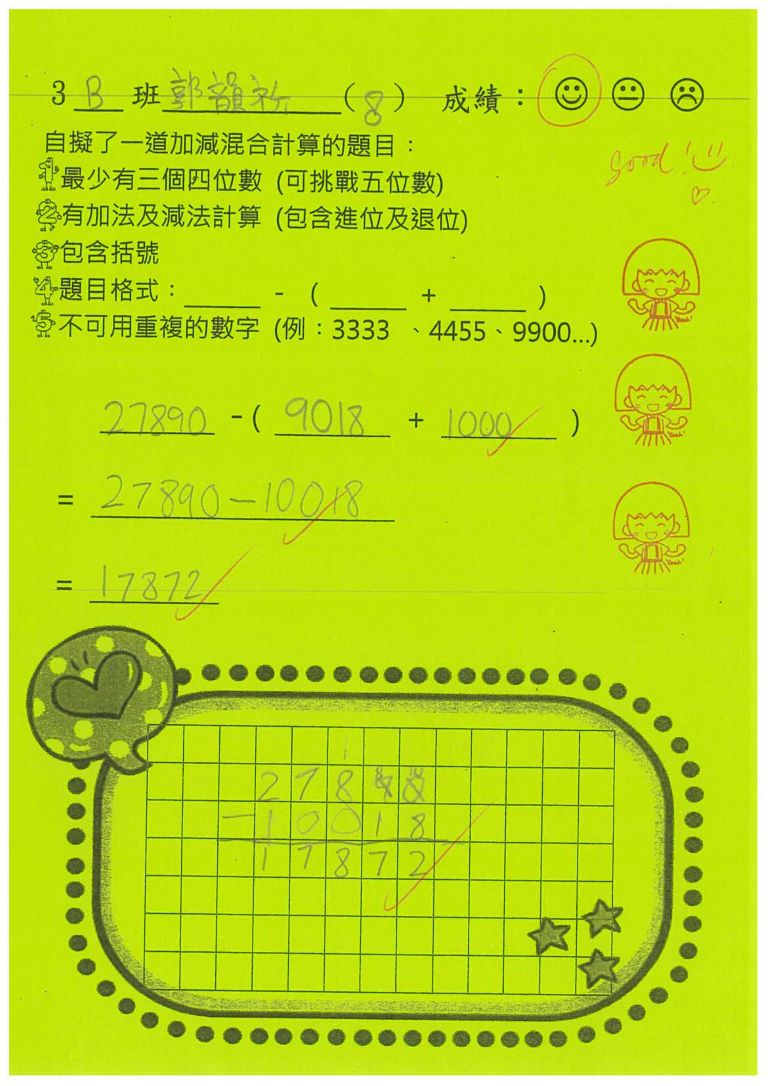 3 B 班 郭韻祈 (8) 成績：
自擬了一道加減混合計算的題目：
good!
1 最少有三個四位數 (可挑戰五位數)
2 有加法及減法計算 (包含進位及退位)
3 包含括號
4 題目格式：______ - ( ______ + ______ )
5 不可用重複的數字 (例：3333 、4455、9900...)
Yeah!
27890 - ( 9018 + 1000 )
Yeah!
= 27890 − 10018
Yeah!
= 17872
1
278
− 10018
17872